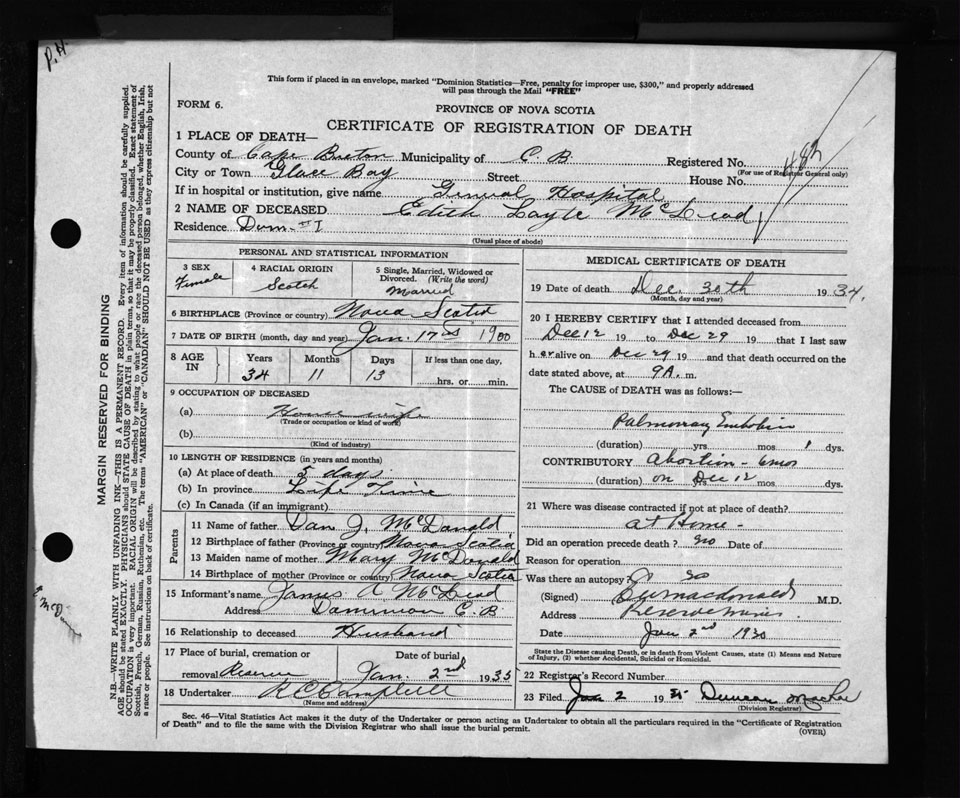 P.H
This form if placed in an envelope, marked "Dominion Statistics—Free, penalty for improper use, $300," and properly addressed
will pass through the Mail "FREE"
FORM 6.
PROVINCE OF NOVA SCOTIA
CERTIFICATE OF REGISTRATION OF DEATH
1 PLACE OF DEATH—
County of Cape Breton Municipality of C. B. Registered No. 482
(For use of Registrar General only)
City or Town Glace Bay Street House No.
If in hospital or institution, give name General Hospital
2 NAME OF DECEASED Edith Layle McLeod
Residence Dom. #1
(Usual place of abode)
PERSONAL AND STATISTICAL INFORMATION
3 SEX Female
4 RACIAL ORIGIN Scotch
5 Single, Married, Widowed or
Divorced. (Write the word)
Married
6 BIRTHPLACE (Province or country) Nova Scotia
7 DATE OF BIRTH (month, day and year) Jan. 17th 1900
8 AGE IN
Years Months Days If less than one day,
34 11 13 hrs. or min.
9 OCCUPATION OF DECEASED
(a) House wife
(Trade or occupation or kind of work)
(b)
(Kind of industry)
10 LENGTH OF RESIDENCE (in years and months)
(a) At place of death 5 days
(b) In province Life Time
(c) In Canada (if an immigrant)
Parents
11 Name of father Dan J. McDonald
12 Birthplace of father (Province or country) Nova Scotia
13 Maiden name of mother Mary McDonald
14 Birthplace of mother (Province or country) Nova Scotia
15 Informant's name James A McLeod
Address Dominion C.B
16 Relationship to deceased Husband
17 Place of burial, cremation or Date of burial
removal Reserve Jan. 2nd 1935
18 Undertaker R C Campbell
(Name and address)
MEDICAL CERTIFICATE OF DEATH
19 Date of death Dec. 30th 1934.
(Month, day and year)
20 I HEREBY CERTIFY that I attended deceased from
Dec 12 19 to Dec 29 19 that I last saw
her alive on Dec 29 19 and that death occurred on the
date stated above, at 9A. m.
The CAUSE of DEATH was as follows:
Palmonray Embolin
(duration) yrs. mos 1 dys.
CONTRIBUTORY Abortion - 6mos
(duration) on Dec 12 yrs. mos. dys.
21 Where was disease contracted if not at place of death?
at Home -
Did an operation precede death? no Date of
Reason for operation
Was there an autopsy? no
(Signed) Macdonald M.D.
Address Reserve Mines
Date Jan 2nd 1930
State the Disease causing Death, or in death from Violent Causes, state (1) Means and Nature
of Injury, (2) whether Accidental, Suicidal or Homicidal.
22 Registrar's Record Number
23 Filed Jan 2 1935 Duncan MacRae
(Division Registrar)
Sec. 46—Vital Statistics Act makes it the duty of the Undertaker or person acting as Undertaker to obtain all the particulars required in the "Certificate of Registration
of Death" and to file the same with the Division Registrar who shall issue the burial permit.
(OVER)
MARGIN RESERVED FOR BINDING
N.B.—WRITE PLAINLY WITH UNFADING INK—THIS IS A PERMANENT RECORD. Every item of information should be carefully supplied.
AGE should be stated EXACTLY. PHYSICIANS should STATE CAUSE OF DEATH in plain terms, so that it may be properly classified. Exact statement of
OCCUPATION is very important. RACIAL ORIGIN will be described by stating to what people or race the deceased person belonged, whether English, Irish,
Scottish, French, German, Russian, Ruthenian, etc. The terms "AMERICAN" or "CANADIAN" SHOULD NOT BE USED as they express citizenship but not
a race or people. See instructions on back of certificate.